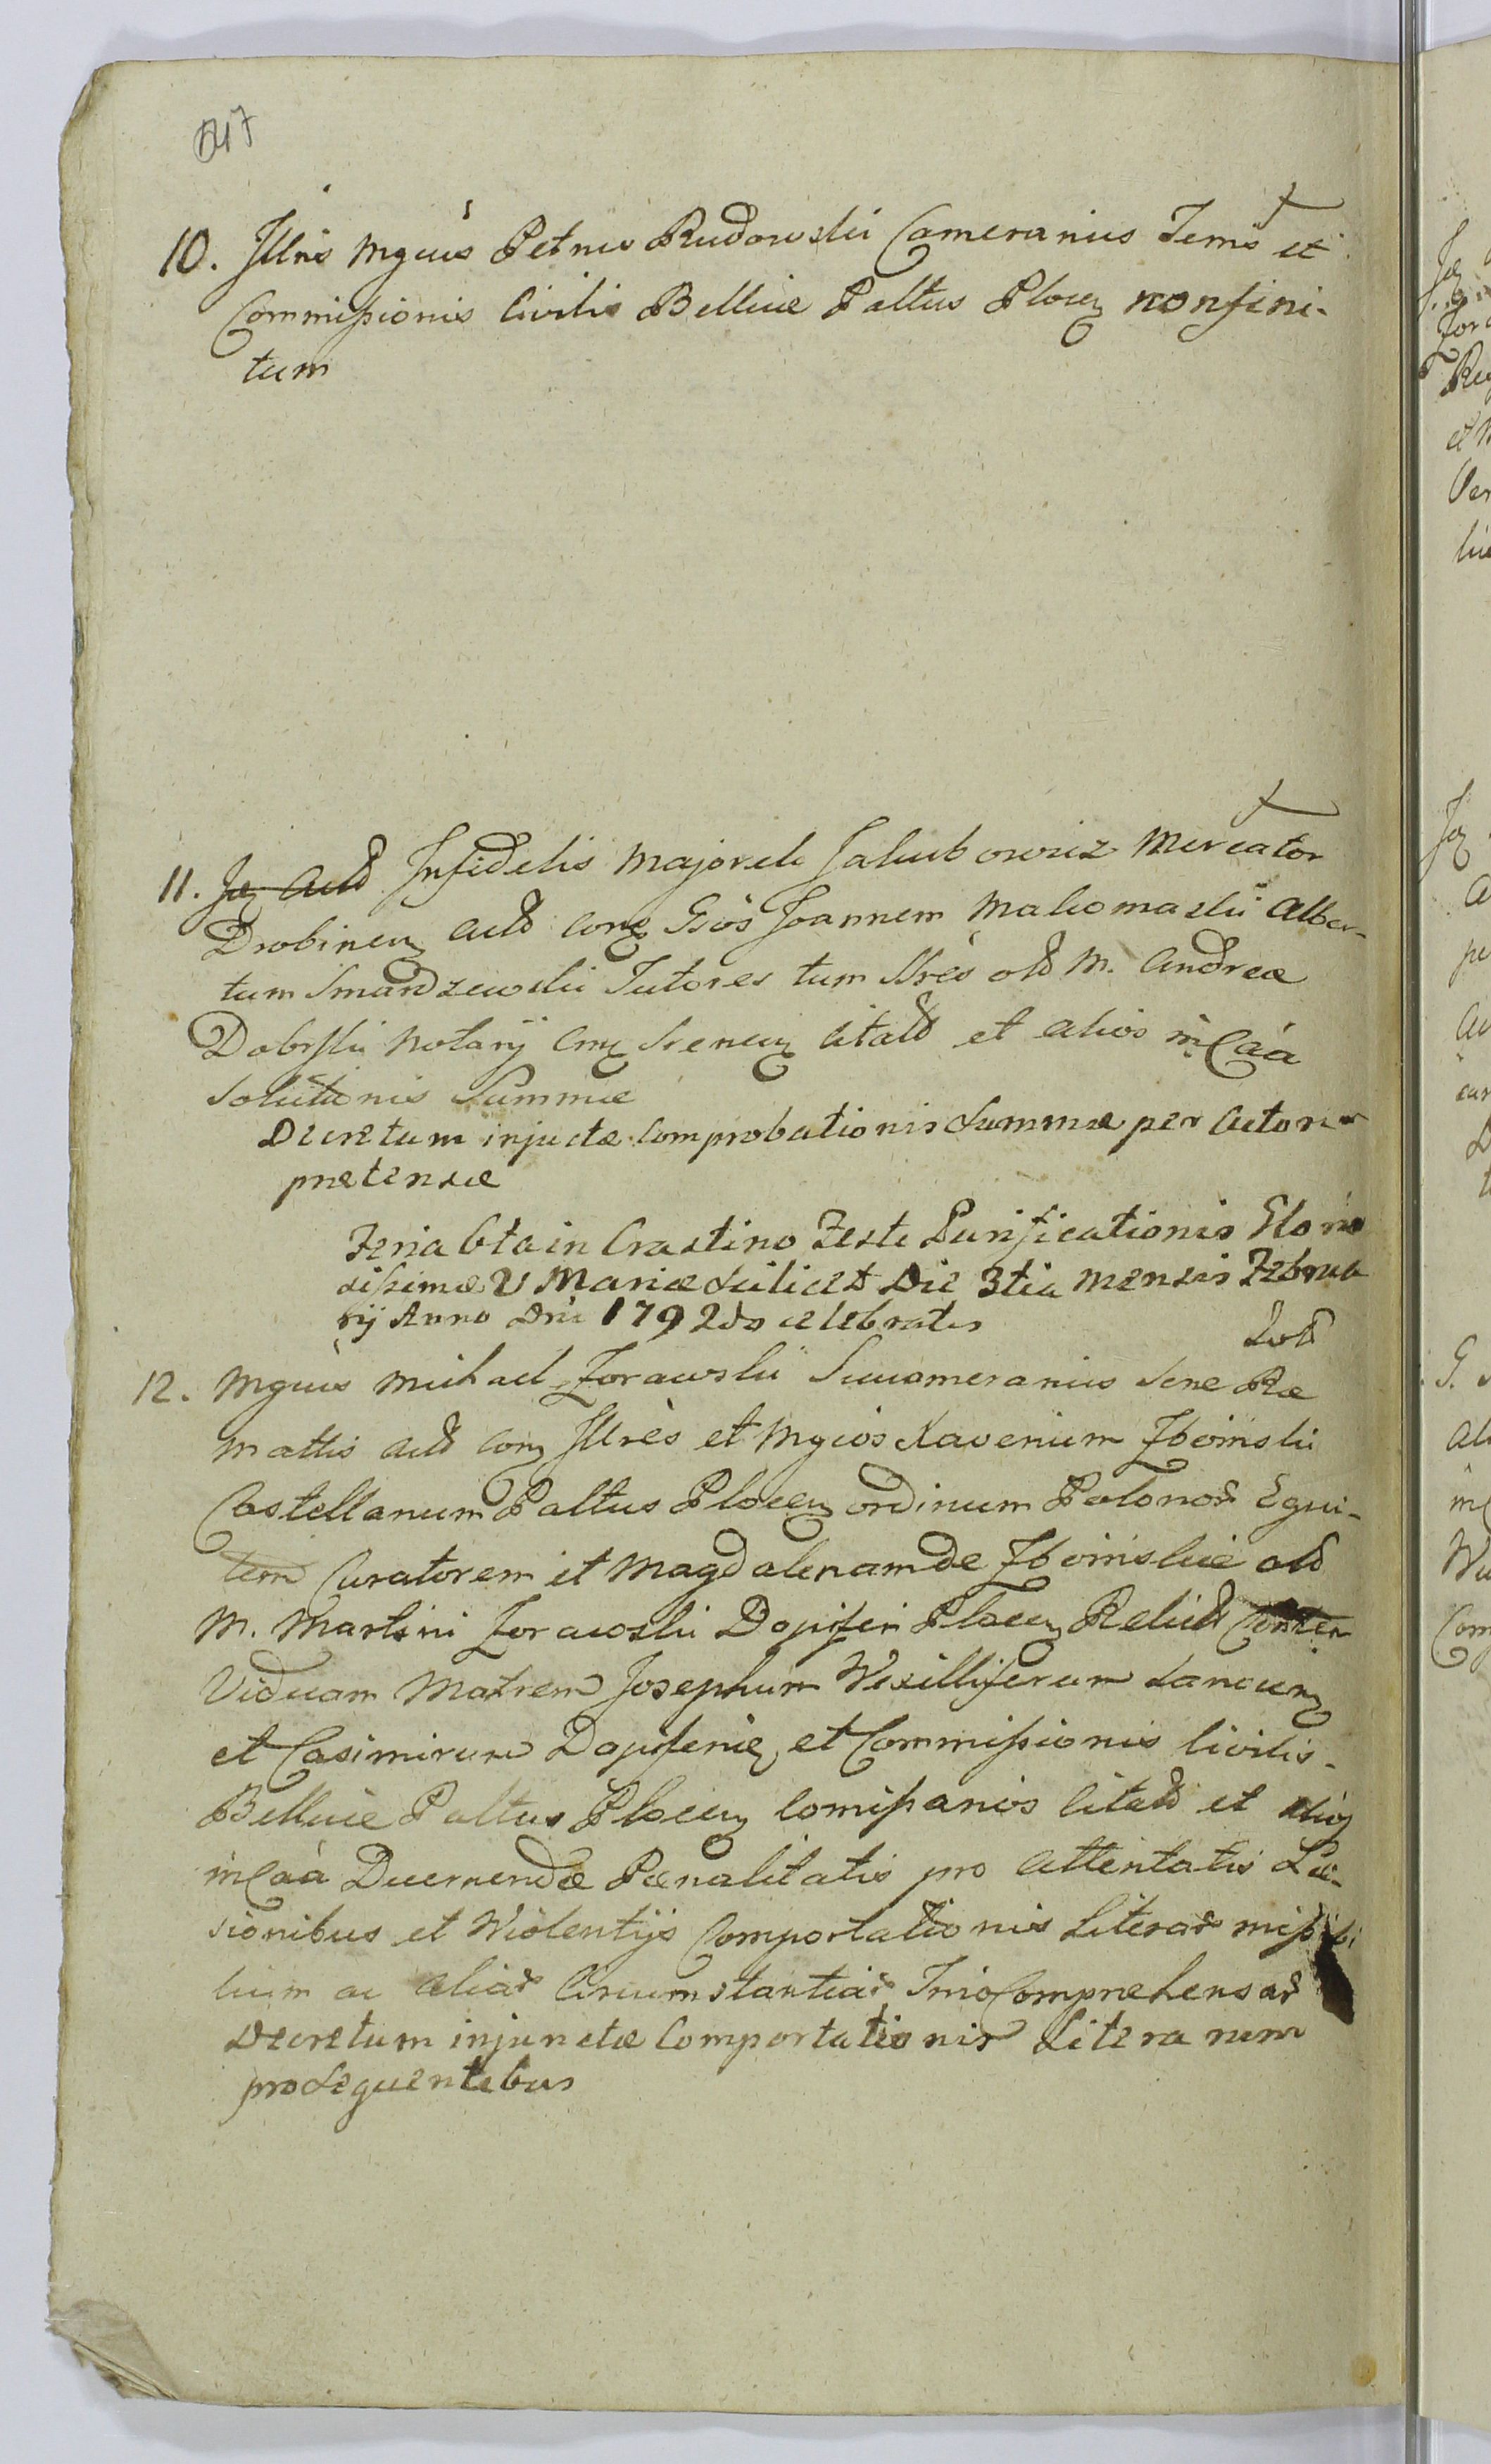 10. Jllris Mgcus Petrus Rudowski Camerarius Terris et
Commissionis Civilis Bellicæ Paltus Plocen nonfini-
tum
11. Jez Actd Infidelis Majorek Jakubowicz Mercator
Drobinen Actd Con Gsos Joannem Makomaski Alber-
tum Smardzewski Tutores tum Sres old M. Andreæ
Dobrski Notarij Srenen Citatd et alios in Caa
Solutionis Summæ
Decretum injuctæ Comprobationis Summæ per Actorem
prætensæ
Feria 6ta in Crastino Festi Purificationis Glorio
sissimæ V Mariæ scilicet Die 3tia Mensis Februa
rij Anno Dni 1792do celebratis
Sod
12. Mgcus Michael Zorawski Succamerarius Sere Ræ
Mattis Actd Con Jllres et Mgcos Xaverium Zboinski
Castellanum Paltus Plocen ordinum Polonor Equi-
tem Curatorem et Magdalenam de Zboinskie old
M. Martini Zorawski Dapiferi Plocen Relictd
Viduam Matrem Josephum Vexilliferum
et Casimirum et Commissionis Civilis
Bellicæ Paltus Plocen Comissarios Citatd et alios
in Caa Decernendæ Pænalitatis pro attentatis Læ-
sionibus et Wiolentijs Comportationis Literar missibi
lium ac aliar Circumstantiar Comprehensar
Decretum injunctæ Comportationis Literarum
prosequentibus